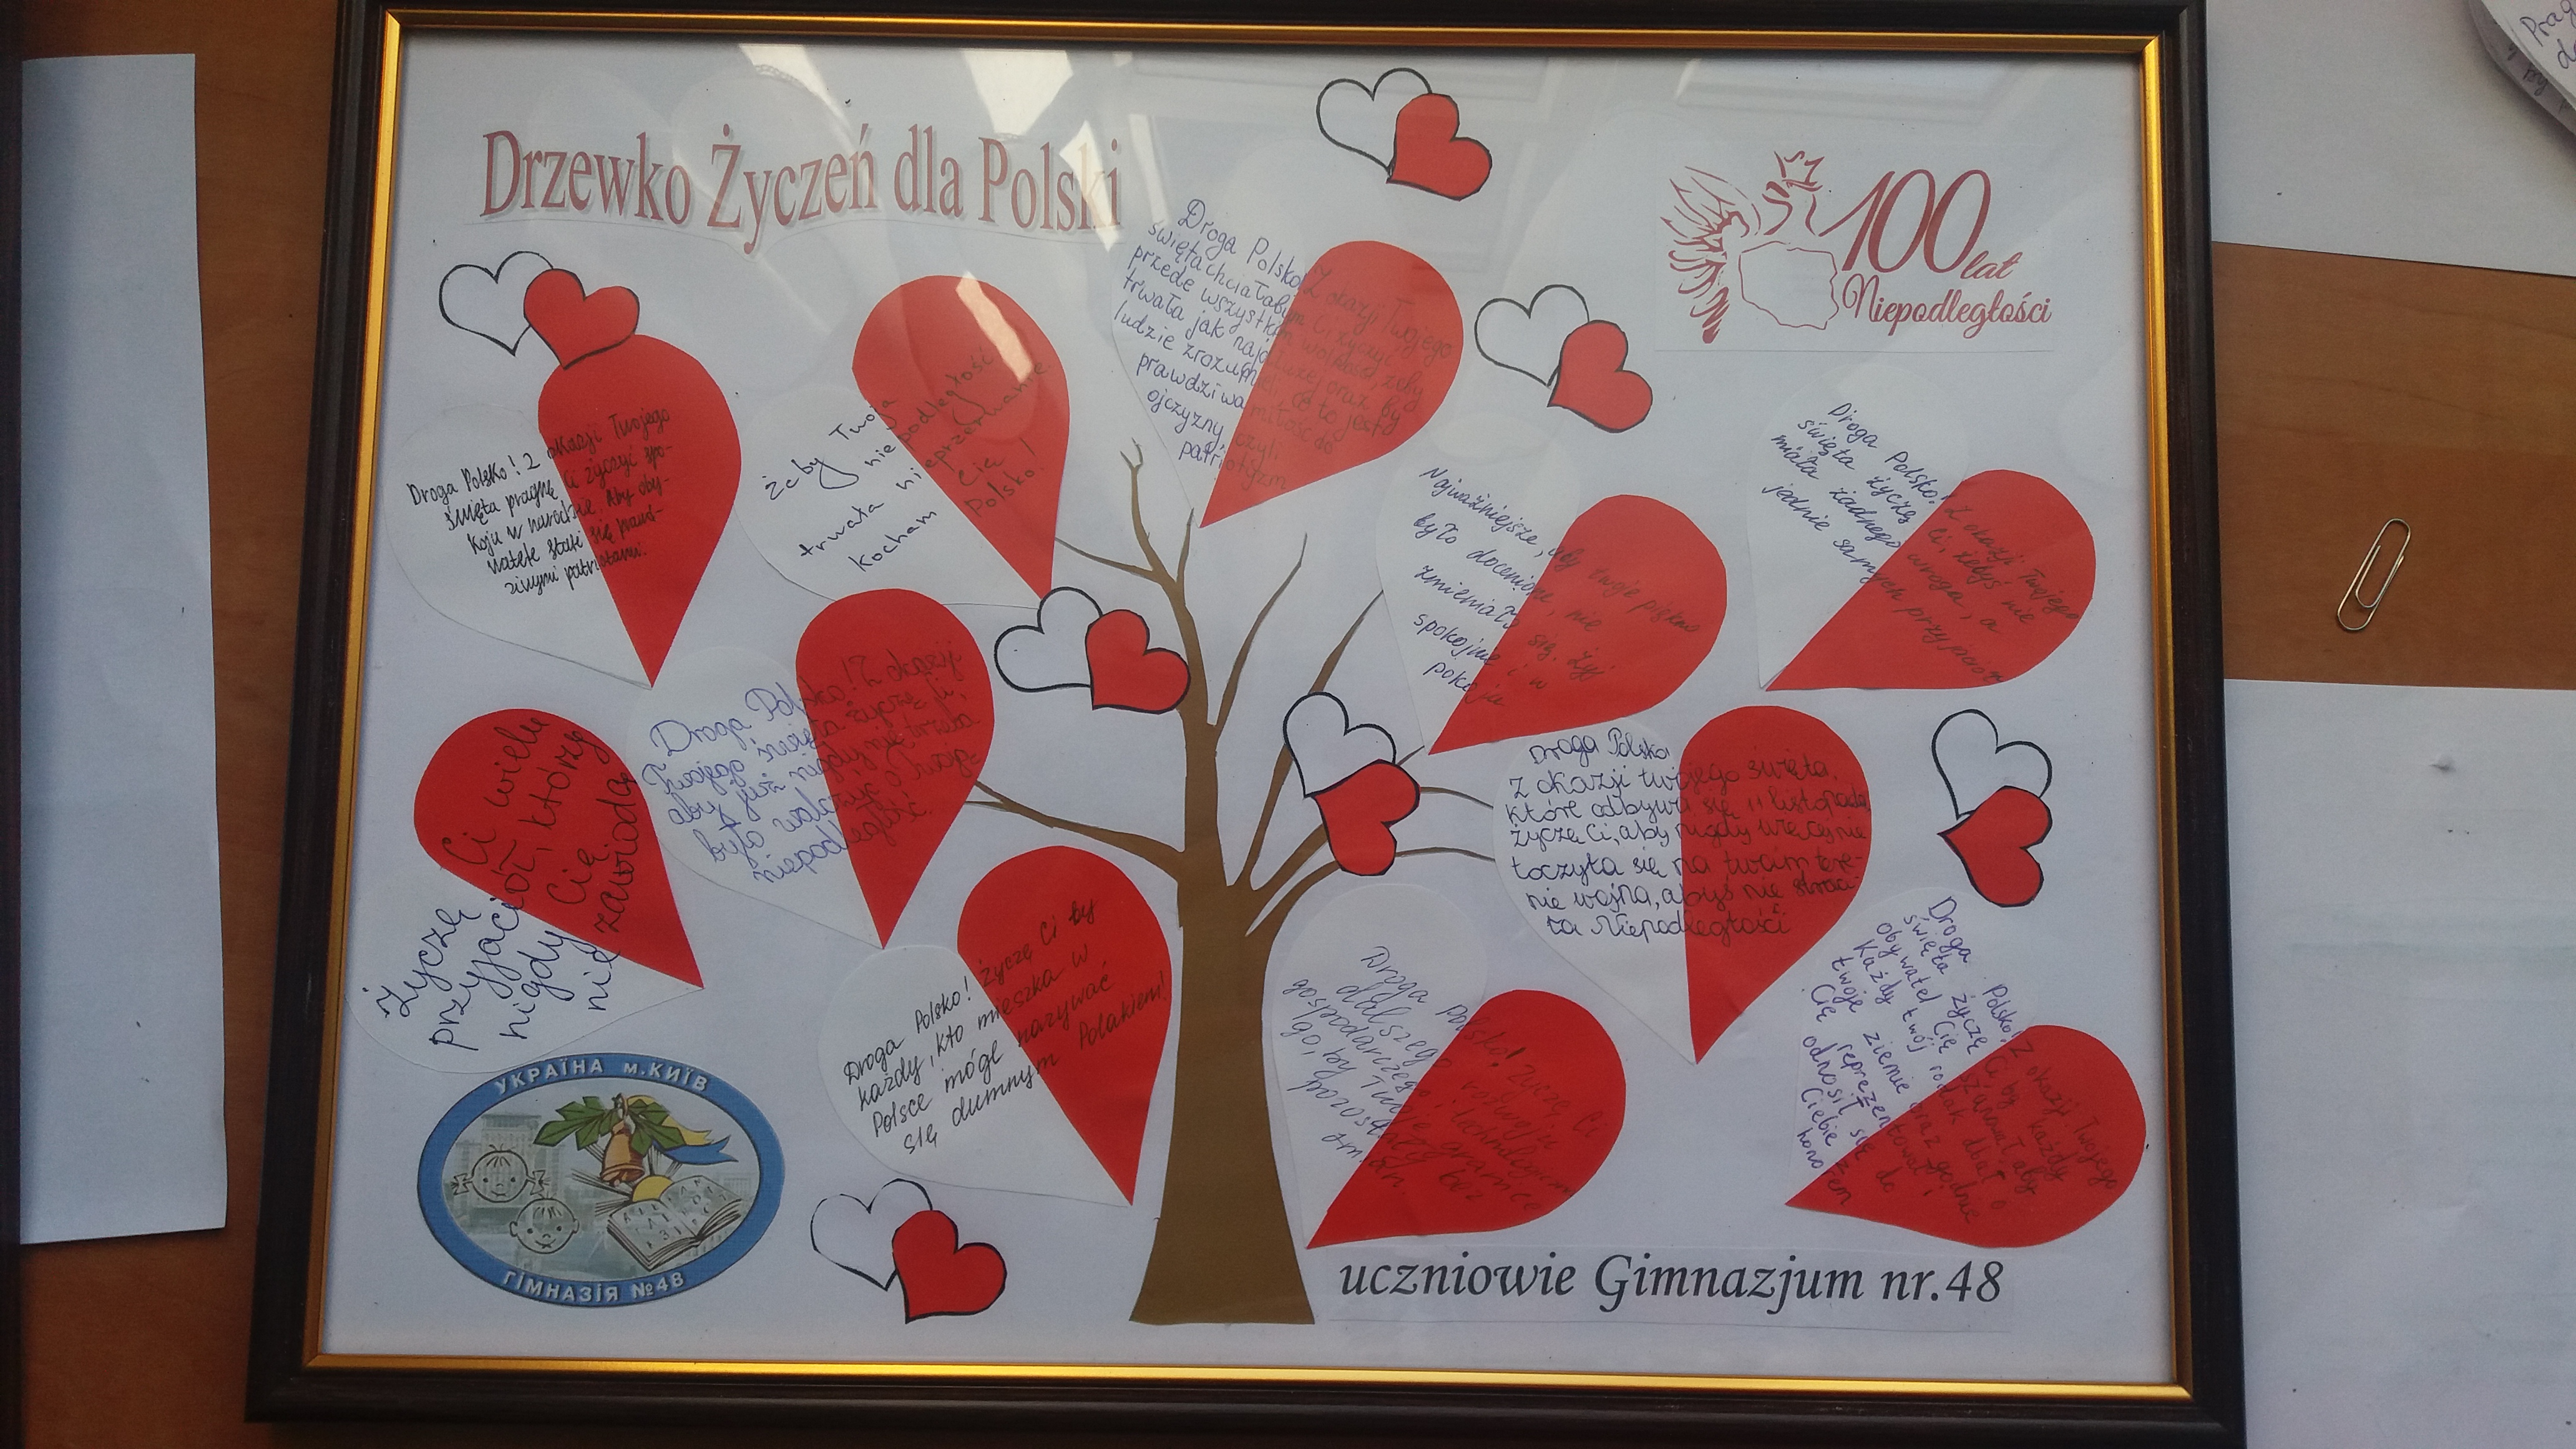 Drzewko Życzeń dla Polski
100 lat
Niepodległości
Droga Polsko! Z okazji Twojego
święta pragnę Ci życzyć spo-
koju w narodzie. Aby oby-
watele stali się prawd-
ziwymi patriotami.
żeby Twoja
niepodległość
trwała nieprzerwanie!
kocham Cię
Polsko!
Droga Polsko! Z okazji Twojego
święta chciałabym Ci życzyć
przede wszystkim wolności, żeby
trwała jak najdłużej oraz by
ludzie zrozumieli, że to jest
prawdziwa miłość do
ojczyzny, czyli
patriotyzm
Najważniejsze, aby twoje piękno
było docenione, nie
zmieniało się. Żyj
spokojnie i w
pokoju
Droga Polsko! Z okazji Twojego
święta życzę Ci, żebyś nie
miała żadnego wroga, a
jednie samych przyjaciół
Życzę Ci wielu
przyjaciół, którzy
nigdy Cię
nie zawiodą
Droga Polsko! Z okazji
Twojego święta życzę Ci,
aby już nigdy nie trzeba
było walczyć o
niepodległość.
Droga Polsko! życzę Ci by
każdy, kto mieszka w
Polsce mógł nazywać
się dumnym Polakiem!
Droga Polska
z okazji twojego święta,
które odbywa się 11 listopada
życzę Ci, aby nigdy więcej nie
toczyła się na twoim tere-
nie wojna, abyś nie straci-
ła Niepodległości
Droga Polsko! Życzę Ci
dalszego rozwoju
gospodarczego i techniczne
go, by Twoje granice
pozostały bez
zmian
Droga Polsko! Z okazji Twojego
święta życzę Ci, by każdy
obywatel Cię szanował aby
Każdy twój rodak dbał o
twoje ziemie oraz godnie
Cię reprezentował i
odnosił się do
Ciebie z
honorem
УКРАЇНА м.КИЇВ
ГІМНАЗІЯ №48
uczniowie Gimnazjum nr.48